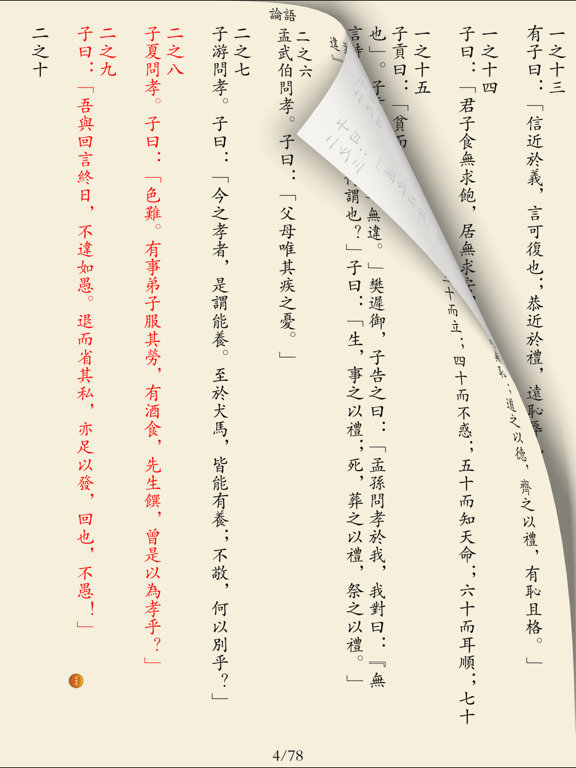 論語
一之十三
有子曰：「信近於義，言可復也；恭近於禮，遠恥
恥；道之以德，齊之以禮，有恥且格。」
一之十四
子曰：「君子食無求飽，居無求安，
十而立；四十而不惑；五十而知天命；六十而耳順；七十
一之十五
子貢曰：「貧而
也」。子
無違。」樊遲御，子告之曰：「孟孫問孝於我，我對曰：『無
謂也？」子曰：「生，事之以禮；死，葬之以禮，祭之以禮。」
二之六
孟武伯問孝。子曰：「父母唯其疾之憂。」
二之七
子游問孝。子曰：「今之孝者，是謂能養。至於犬馬，皆能有養；不敬，何以別乎？」
二之八
子夏問孝。子曰：「色難。有事弟子服其勞，有酒食，先生饌，曾是以為孝乎？」
二之九
子曰：「吾與回言終日，不違如愚。退而省其私，亦足以發，回也，不愚！」
二之十
4/78